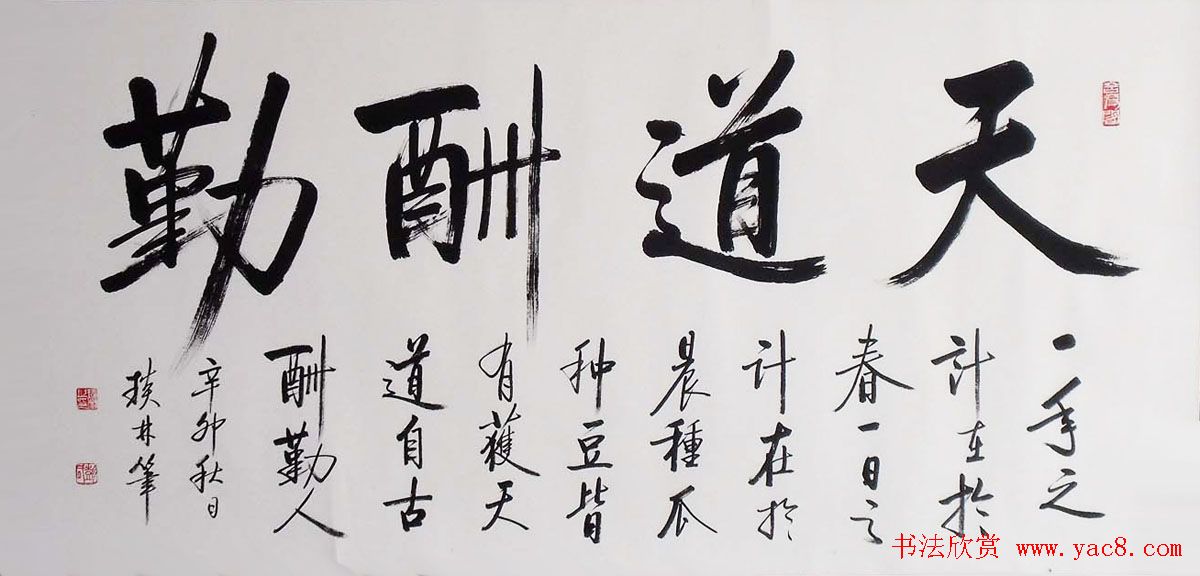 天道酬勤
一年之
計在於
春一日之
计在於
晨種瓜
种豆皆
有獲天
道自古
酬勤人
辛卯秋日
林筆
书法欣赏 www.yac8.com